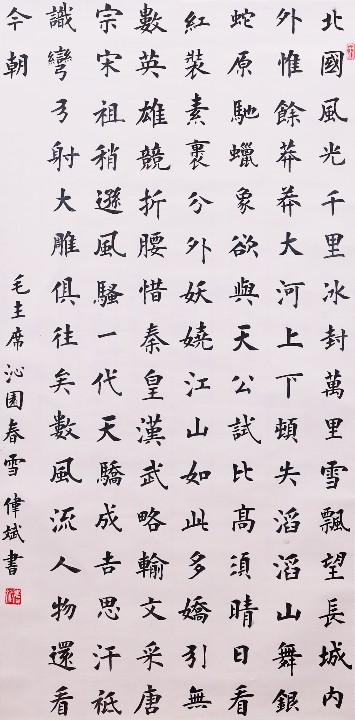 北國風光千里冰封萬里雪飄望長城內
外惟餘莽莽大河上下頓失滔滔山舞銀
蛇原馳蠟象欲與天公試比高須晴日看
紅裝素裹分外妖嬈江山如此多嬌引無
數英雄競折腰惜秦皇漢武略輸文采唐
宗宋祖稍遜風騷一代天驕成吉思汗祇
識彎弓射大雕俱往矣數風流人物還看
今朝
毛主席沁園春雪偉斌書